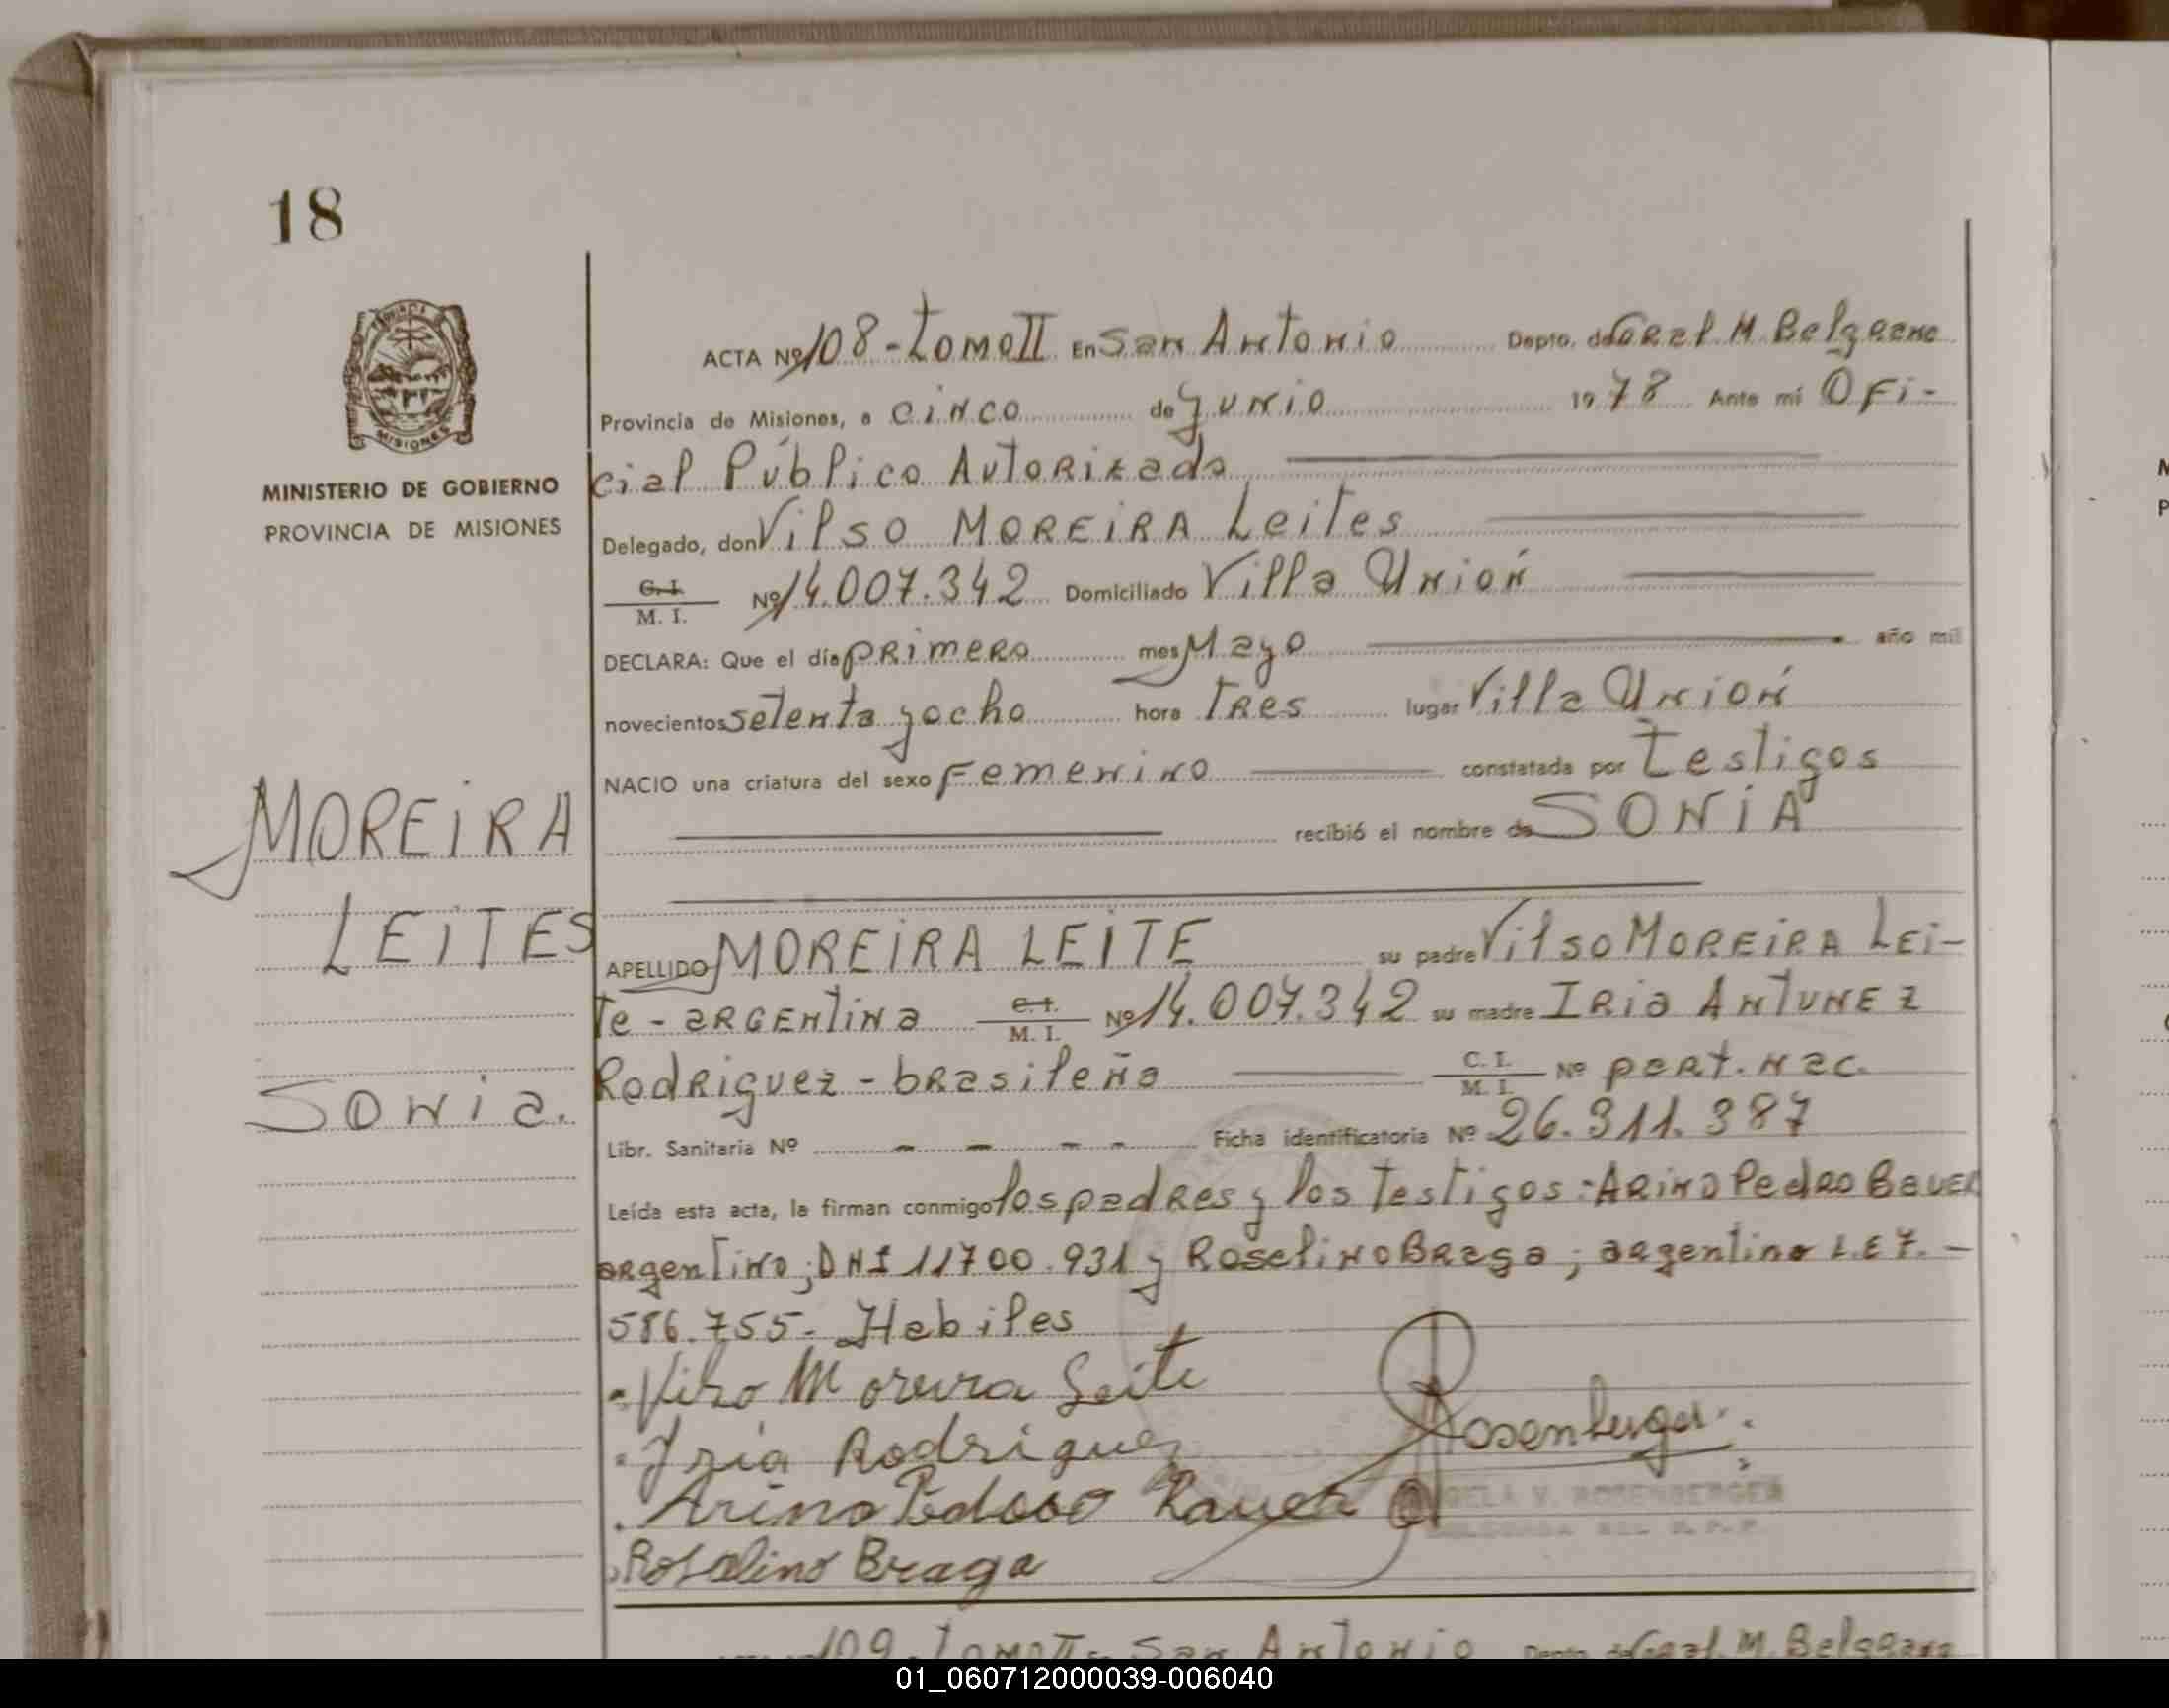 18
PROVINCIA
MISIONES
MINISTERIO DE GOBIERNO
PROVINCIA DE MISIONES
MOREIRA
LEITES
Sonia.
ACTA Nº 108 - Tomo II En San Antonio Depto. de Gral. M. Belgrano
Provincia de Misiones, a cinco de Junio 1978 Ante mí Ofi-
cial Público Autorizado
Delegado, don Vilso MOREIRA Leites
C. I. / M. I. Nº 14.007.342 Domiciliado Villa Unión
DECLARA: Que el día primero mes Mayo año mil
novecientos setenta y ocho hora Tres lugar Villa Unión
NACIO una criatura del sexo Femenino constatada por Testigos
recibió el nombre de SONIA
APELLIDO MOREIRA LEITE su padre Vilso MOREIRA Lei-
te - argentina C. I. / M. I. Nº 14.007.342 su madre IRia ANTUNEZ
Rodriguez - brasileña C. I. / M. I. Nº part. nac.
Libr. Sanitaria Nº - - - - Ficha identificatoria Nº 26.311.387
Leída esta acta, la firman conmigo los padres y los Testigos: ARINO Pedro Bauer
argentino; DNI 11700.931 y Roselino Braga; argentino L.E 7. -
586.755. Habiles
Vilso Moreira Leite
Iria Rodriguez
Rosenberger
Arino
ANGELA V. ROSENBERGER
Rosalino Braga
109 - Tomo II - San Antonio Depto. de Gral. M. Belgrano
01_060712000039-006040